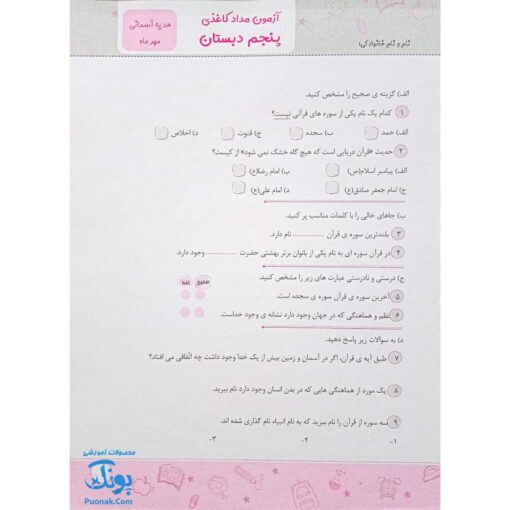 آزمون مداد کاغذی
پنجم دبستان
هدیه آسمانی
مهر ماه
نام و نام خانوادگی:
الف) گزینه ی صحیح را مشخص کنید.
۱ کدام یک نام یکی از سوره های قرآنی نیست؟
الف) حمد ب) سجده ج) قنوت د) اخلاص
۲ حدیث «قرآن دریایی است که هیچ گاه خشک نمی شود» از کیست؟
الف) پیامبر اسلام(ص) ب) امام رضا(ع)
ج) امام جعفر صادق(ع) د) امام علی(ع)
ب) جاهای خالی را با کلمات مناسب پر کنید.
۳ بلندترین سوره ی قرآن ............ نام دارد.
۴ در قرآن سوره ای به نام یکی از بانوان برتر بهشتی حضرت ............ وجود دارد.
ج) درستی و نادرستی عبارت های زیر را مشخص کنید. صحیح غلط
۵ آخرین سوره ی قرآن سوره ی سجده است.
۶ نظم و هماهنگی که در جهان وجود دارد نشانه ی وجود خداست.
د) به سوالات زیر پاسخ دهید.
۷ طبق آیه ی قرآن، اگر در آسمان و زمین بیش از یک خدا وجود داشت چه اتّفاقی می افتاد؟
۸ یک مورد از هماهنگی هایی که در بدن انسان وجود دارد نام ببرید.
۹ سه سوره از قرآن را نام ببرید که به نام انبیاء نام گذاری شده اند.
۱- ۲- ۳-
محصولات آموزشی
پونک
Puonak.Com